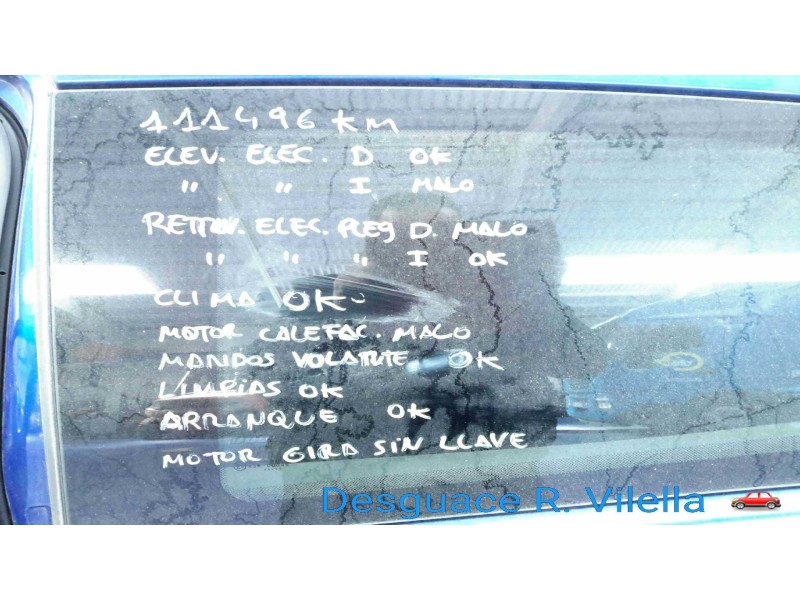 111496 KM
ELEV. ELEC. D OK
" " I MALO
RETROV. ELEC. PLEG D. MALO
" " " I OK
CLIMA OK
MOTOR CALEFAC. MALO
MANDOS VOLANTE OK
LIMPIAS OK
ARRANQUE OK
MOTOR GIRA SIN LLAVE
Desguace R. Vilella